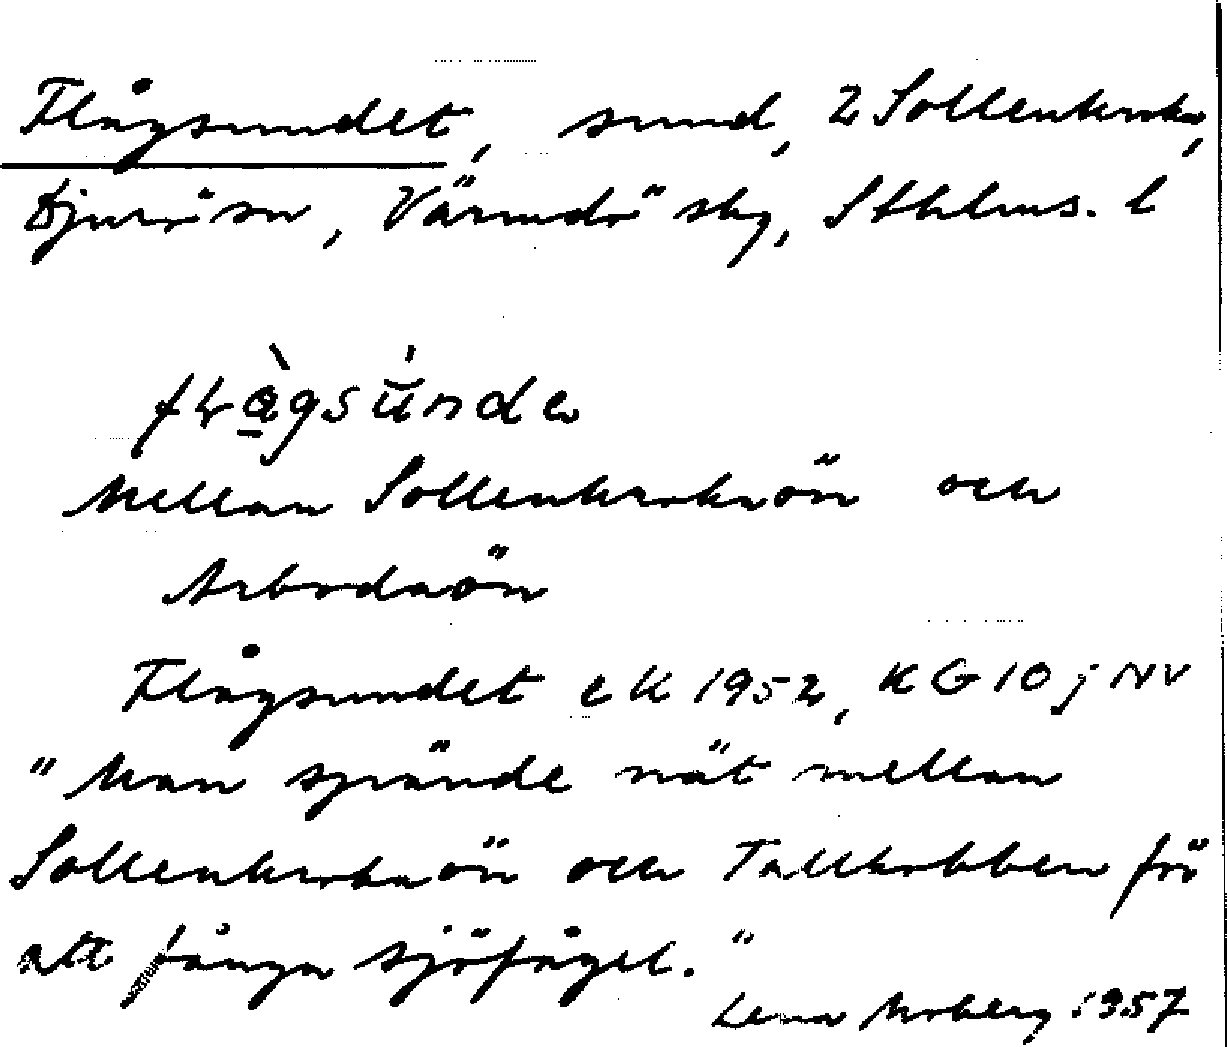 Flågsundet, sund, 2 Sollenkroka,
Djurö sn, Värmdö slg, Sthlms. l
Mellan Sollenkrokaön och
Arbodaön
Flågsundet EK 1952, KG 10 j NV
"Man spände nät mellan
Sollenkrokaön och Tallkobben för
att fånga sjöfågel."
Lena Moberg 1957